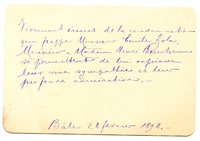 Vivement émus de la condamnation
qui frappe Monsieur Emile Zola,
Monsieur & Madame Henri
se permettent de lui exprimer
leur vive sympathie et leur
profonde admiration.
Bâle 28 février 1898.